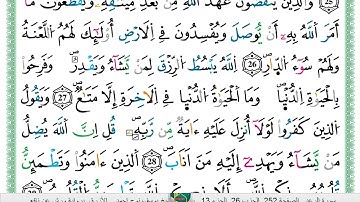 وَٱلَّذِينَ يَنقُضُونَ عَهْدَ ٱللَّهِ مِنۢ بَعْدِ مِيثَٰقِهِۦ وَيَقْطَعُونَ مَآ
أَمَرَ ٱللَّهُ بِهِۦٓ أَنْ يُوصَلَ وَيُفْسِدُونَ فِي ٱلْأَرْضِ أُوْلَٰٓئِكَ لَهُمُ ٱللَّعْنَةُ
وَلَهُمْ سُوٓءُ ٱلدَّارِ 26 ٱللَّهُ يَبْسُطُ ٱلرِّزْقَ لِمَنْ يَّشَآءُ وَيَقْدِرُ وَفَرِحُوا۟
بِالْحَيَوٰةِ ٱلدُّنْيَا وَمَا ٱلْحَيَوٰةُ ٱلدُّنْيَا فِي ٱلْأَخِرَةِ إِلَّا مَتَٰعٌ 27 وَيَقُولُ
ٱلَّذِينَ كَفَرُوا۟ لَوْلَآ أُنزِلَ عَلَيْهِ ءَايَةٌ مِّن رَّبِّهِۦ قُلِ انَّ ٱللَّهَ يُضِلُّ
مَنْ يَّشَآءُ وَيَهْدِےٓ إِلَيْهِ مَنَ اَنَابَ 28 ٱلَّذِينَ ءَامَنُوا۟ وَتَطْمَئِنُّ
الصفحة 252